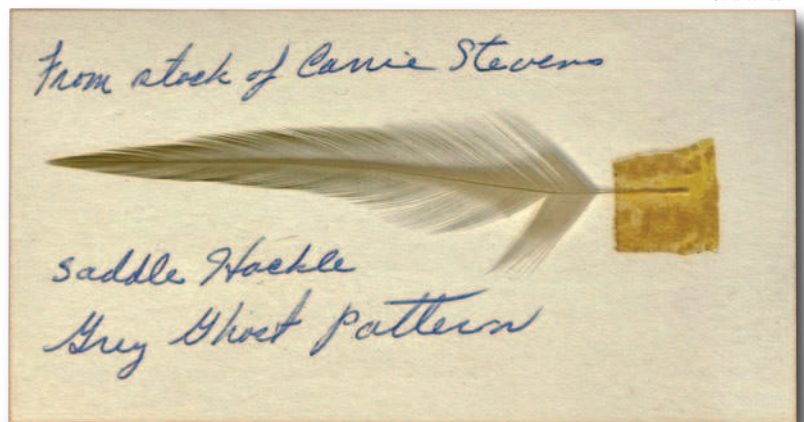 From stock of Carrie Stevens
saddle Hackle
Grey Ghost pattern